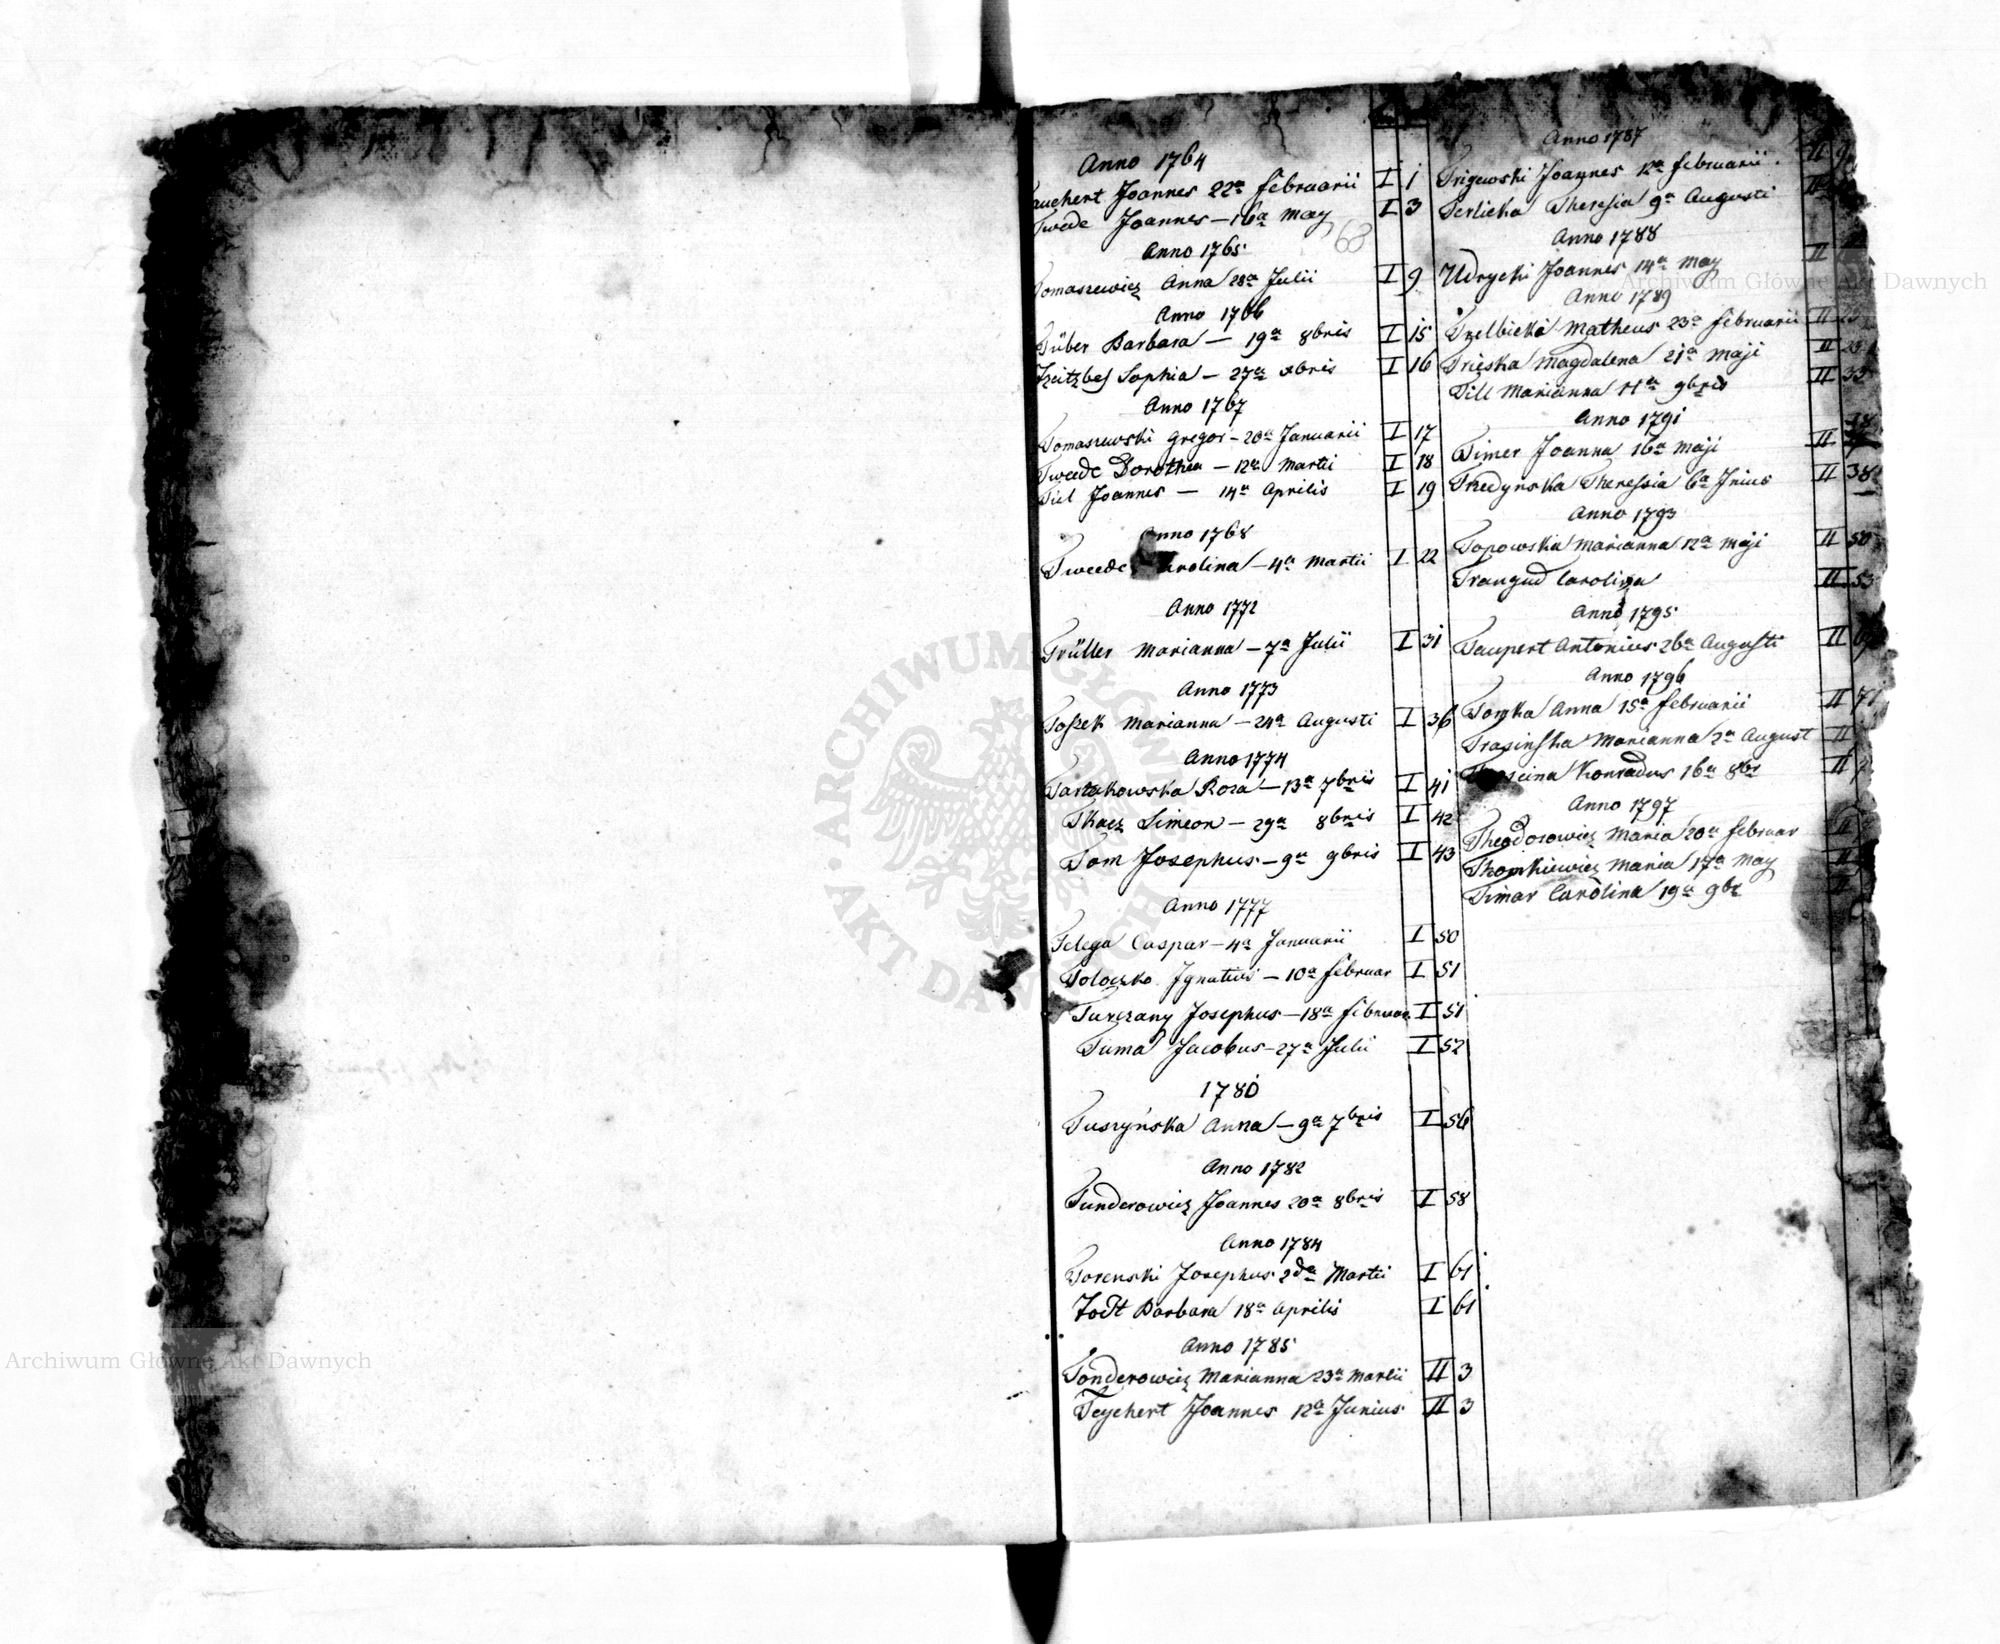 Anno 1764
Tauchert Joannes 22a februarii I 1
Twede Joannes - 16a May I 3
68
Anno 1765
Tomaszewicz Anna 28a Julii I 9
Anno 1766
Tüber Barbara - 19a 8bris I 15
Sophia - 27a xbris I 16
Anno 1767
Tomaszewski Gregor - 20a Januarii I 17
Tweede Dorothea - 12a Martii I 18
Tiel Joannes - 14a Aprilis I 19
Anno 1768
Tweede Carolina - 4a Martii I 22
Anno 1772
Trüller Marianna - 7a Julii I 31
Anno 1773
Toszek Marianna - 24a Augusti I 36
Anno 1774
Tartakowska Roza - 13a 7bris I 41
Tkacz Simeon - 29a 8bris I 42
Tom Josephus - 9a 9bris I 43
Anno 1777
Telega Caspar - 4a Januarii I 50
Toloczko Ignatius - 10a februar I 51
Turczany Josephus - 18a februar. I 51
Tuma Jacobus - 27a Julii I 52
1780
Tuszyńska Anna - 9a 7bris I 56
Anno 1782
Tunderowicz Joannes 20a 8bris I 58
Anno 1784
Torenski Josephus 2da Martii I 61
Todt Barbara 18a Aprilis I 61
Anno 1785
Tonderowicz Marianna 23a Martii II 3
Teychert Joannes 12a Junius II 3
Anno 1787
Trigewski Joannes 12a februarii. II 9
Terlicka Theresia 9a Augusti II
Anno 1788
Udrycki Joannes 14a May II
Anno 1789
Matheus 23a februarii II
Magdalena 21a Maji II
Till Marianna 11a 9bris II 33
Anno 1791
Timer Joanna 16a Maji II
Theresia 6a Junius II 38
Anno 1793
Topowska Marianna 12a Maji II 50
Traugud Carolina II 53
Anno 1795
Taupert Antonius 26a Augusti II
Anno 1796
Tomka Anna 15a februarii II 71
Trasinska Marianna 2a August II
Konradus 16a 8br II
Anno 1797
Theodorowicz Maria 20a februar II
Thomkiewicz Maria 17a May II
Timar Carolina 19a 9br II
ARCHIWUM GŁÓWNE AKT DAWNYCH
Archiwum Główne Akt Dawnych
Archiwum Główne Akt Dawnych